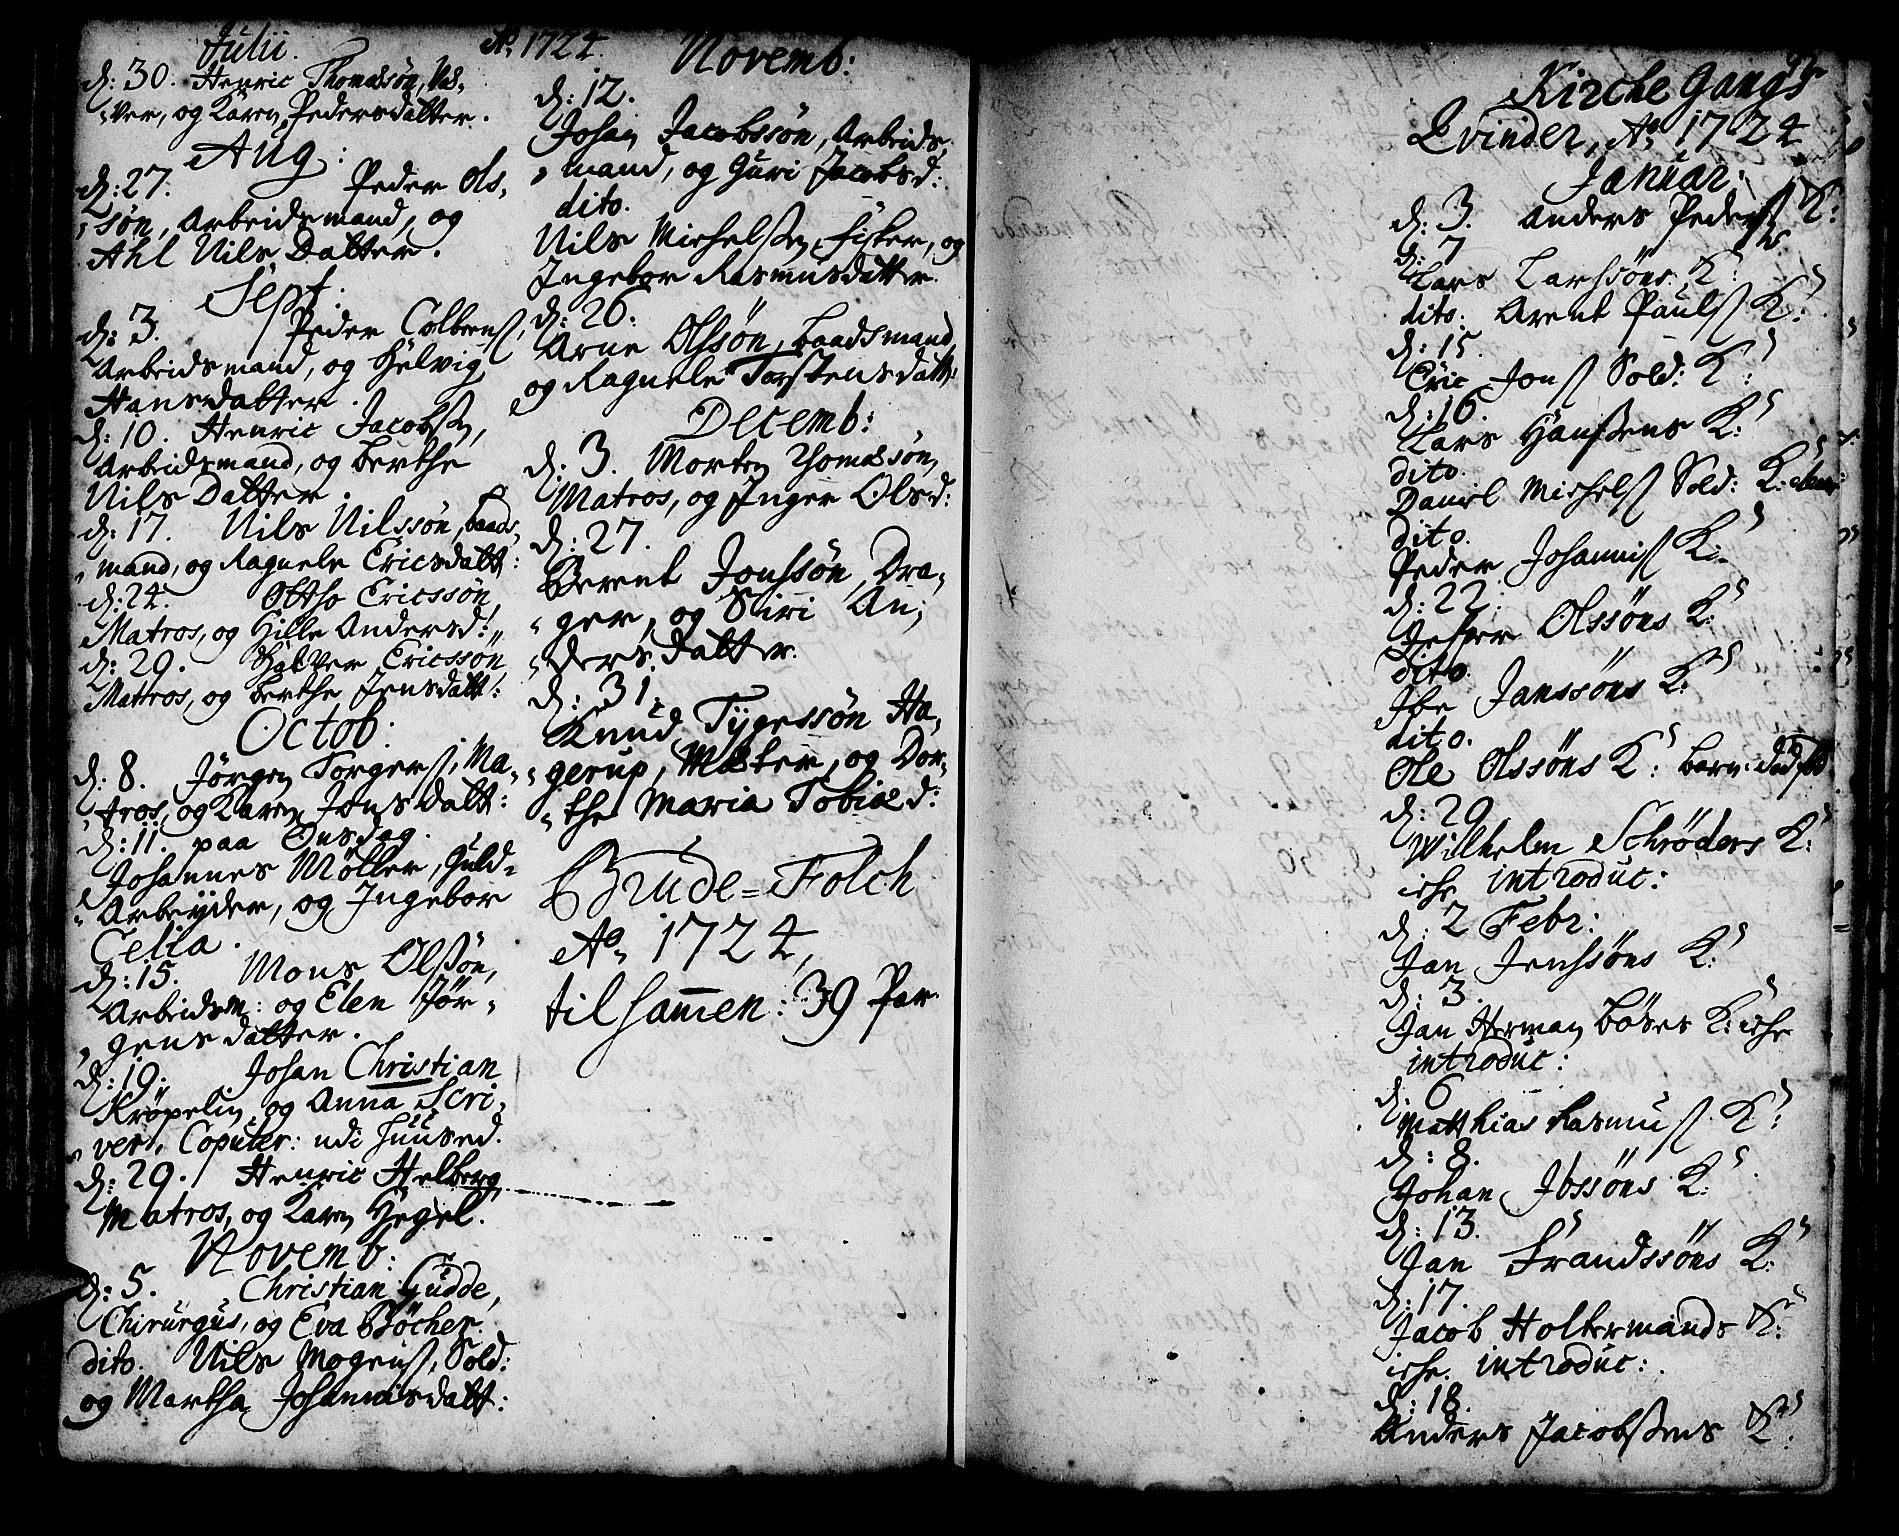 Julii. Ao 1724.
d: 30. Henric Thomassøn,
ver, og Karen Pedersdatter.
Aug:
d: 27. Peder Ols-
søn, Arbeidsmand, og
Ahl Nils Datter.
Sept:
d: 3. Peder Colbens
Arbeidsmand, og Helvig
Hansdatter.
d: 10. Henric Jacobss,
Arbeidsmand, og Berthe
Nils Datter.
d: 17. Nils Nilssøn, baads-
mand, og Ragnele Ericsdatt:
d: 24. Ottho Ericssøn
Matros, og Hille Andersd:
d: 29. Ericssøn
Matros, og Berthe Jensdatt:
Octob.
d: 8. Jørgen Torgers, Ma-
tros, og Karen Jonsdatt:
d: 11. paa Onsdag.
Johannes Møller, Guld-
Arbeyder, og Ingebor
Celia.
d: 15. Mons Olssøn,
Arbeidsm: og Elen Jør-
gensdatter.
d: 19. Johan Christian
Krøpelin, og Anna Scri-
ver, Copuler: udi Huused.
d: 29. Henric Helberg,
Matros, og Karen Hegel.
Novemb:
d: 5. Christian Gudde,
Chirurgus, og Eva Bøcher.
dito. Nils Mogens, Sold:
og Martha Johannisdatt:
Novemb:
d: 12.
Johan Jacobssøn, Arbeids-
mand, og Guri Jacobsd:
dito.
Nils Michelssen, fisker, og
Ingebor Rasmusdatter.
d: 26.
Arne Olssøn, baadsmand,
og Ragnele Torstensdatt:
Decemb:
d: 3. Morten Thomassøn,
Matros, og Inger Olsd:
d: 27.
Berent Jonssøn, Dra-
ger, og Siri An-
dersdatter.
d: 31.
Knud Tygessøn Ha-
gerup, og Dor-
the Maria Tobiæd:
Brude=Folch
Ao 1724,
tilsamen: 39 Par.
Kirche Gangs
Qvinder, Ao 1724
Januar.
d: 3. Anders Peders K:
d: 7
Lars Larssøns K:
dito. Arent Pauls K:
d: 15.
Eric Jons Sold: K:
d: 16.
Lars Hanssens K:
dito.
Daniel Michels Sold: K:
dito.
Peder Johannis K:
d: 22.
Jesper Olssøns K:
dito.
Ibe Janssøns K:
dito.
Ole Olssøns K: barn:
d: 29.
Wilhelm Schrøders K:
iche introduc:
d: 2 Febr:
Jan Jenssøns K:
d: 3.
Jan Herman Bøses K: iche
introduc:
d: 6
Matthias Rasmus K:
d: 8.
Johan Ibssøns K:
d: 13.
Jan Frandssøns K:
d: 17.
Jacob Holtermands K:
iche introduc:
d: 18.
Anders Jacobssens K: